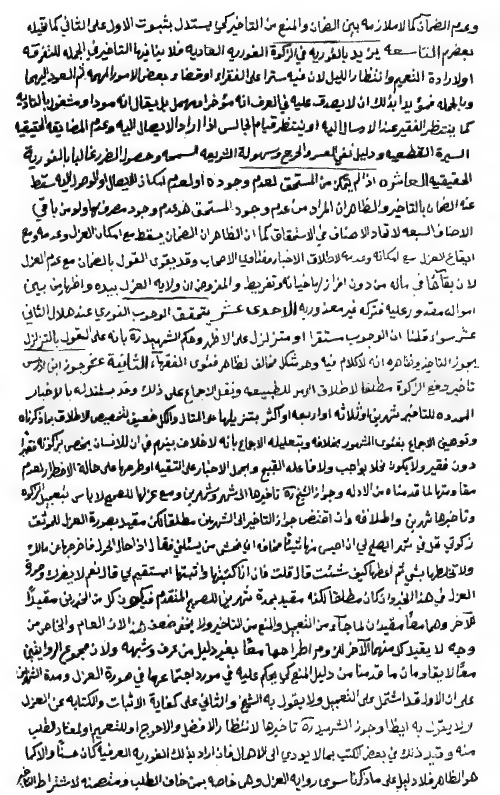 وعدم الضمان كما لا ملازمة بين الضمان والمنع من التأخير كي يستدل بثبوت الاول على الثاني كما قيله
بعضهم التاسعة يريد بالفورية في الزكوة الفورية العادية فلا ينافيها التأخير في الجملة للتفرقة
اولارادة التعميم وانتظار الليل لان فيه سترا على الفقراء او قضاء بعض الامور المهمة ثم العود اليها
وبالجملة فهو يراد بذلك ان لا يصدق عليه في العرف انه مؤخر او مهمل بل يقال انه مودا ومشغول بالتأدية
كما ينتظر الفقير عند الارسال اليه او ينتظر قيام المجالس اذا اراد الايصال اليه وعدم المضايقة الحقيقية
السيرة القطعية ودليل نفي العسر والحرج وسهولة الشريعة السمحة وحصول الضرر غالبا بالفورية
الحقيقية العاشرة اذا لم يتمكن من المستحق لعدم وجوده او لعدم امكان الايصال اليه سقط
عنه الضمان بالتأخير والظاهر ان المراد من عدم وجود المستحق هو عدم وجود مصرف لها ولو من باقي
الاصناف السبعة لاتحاد الاصناف في الاستحقاق كما ان الظاهر ان الضمان يسقط مع امكان العزل وعدمه ومع
ايقاع العزل مع امكانه وعدمه لاطلاق الاخبار وفتاوى الاصحاب وقد يقوى القول بالضمان مع عدم العزل
لان بقائها في ماله من دون افراز لها خيانة وتفريط والمفروض ان ولاية العزل بيده واظهارها من بين
امواله مقدور عليه فتركه غير معذور به الحادى عشر يتحقق الوجوب الفوري عند هلال الثاني
عشر سواء قلنا ان الوجوب مستقرا او متزلزل على الاظهر وحكم الشهيد ره بانه على القول بالتزلزل
يجوز التأخير وظاهره انه لا كلام فيه وهو مشكل مخالف لظاهر فتوى الفقهاء الثانية عشر جوز ابن ادريس
تأخير دفع الزكوة مطلقا لاطلاق الامر للطبيعة ونقل الاجماع على ذلك وقد يستدل له بالاخبار
المحدده للتأخير شهرين او ثلاثة او اربعة او اكثر بتنزيلها على المثال والكل ضعيف لتخصيص الاطلاق بما ذكرناه
وتوهين الاجماع بفتوى المشهور بخلافه وبتعليله الاجماع بانه لا خلاف بينهم في ان للانسان ان يخص بزكوته فقيرا
دون فقير ولا يكون مخلا بواجب ولا فاعلا لقبيح وبحمل الاخبار على التقية او طرحها على حالة الاضطرار لعدم
مقاومتها لما قدمناه من الادلة وجوز الشيخ ره تأخيرها الشهر وشهرين ومع عزلها للصحيح لا باس بتعجيل الزكوة
وتأخيرها شهرين واطلاقه وان اقتضى جواز التأخير الى الشهرين مطلقا لكن مقيد بصورة العزل للموثق
زكوتي تحل في شهر ايصلح لي ان احبس منها شيئا مخافة ان يجئني من يسئلني فقال اذا حال الحول فاخرجها من مالك
ولا تخلطها بشئ ثم اعطها كيف شئت قال قلت فان انا كتبتها واثبتها استقيم لي قال نعم لا يضرك وصرف
العزل في هذا الخبر وان كان مطلقا لكنه مقيد بمدة شهرين للصحيح المتقدم فيكون كل من الخبرين مقيدا
للاخر وهما معا مقيدان لما جاء من التعجيل والمنع من التأخير ولا يخفى ضعف هذا لان العام والخاص من
وجه لا يقيد كل منهما الاخر للزوم اطراحهما معا بغير دليل من عرف وشبهه ولان مجموع الروايتين
معا لا يقاومان ما قدمنا من دليل المنع كي يحكم عليه في مورد اجتماعها في صورة العزل ومدة الشهرين
على ان الاولى قد اشتمل على التعجيل ولا يقول به الشيخ والثاني على كفاية الاثبات والكتابة عن العزل
ولا يقول به ايضا وجوز الشهيد ره تأخيرها لانتظار الافضل والاحوج او للتعميم ولمعتاد الطلب
منه وقيد ذلك في بعض الكتب بما لا يودي الى الاهمال فان اراد بذلك الفورية العرفية كان حسنا والا كما
هو الظاهر فلا دليل على ما ذكرنا سوى رواية العزل وهي خاصة بمن خاف الطلب ومتضمنة لاشتراط